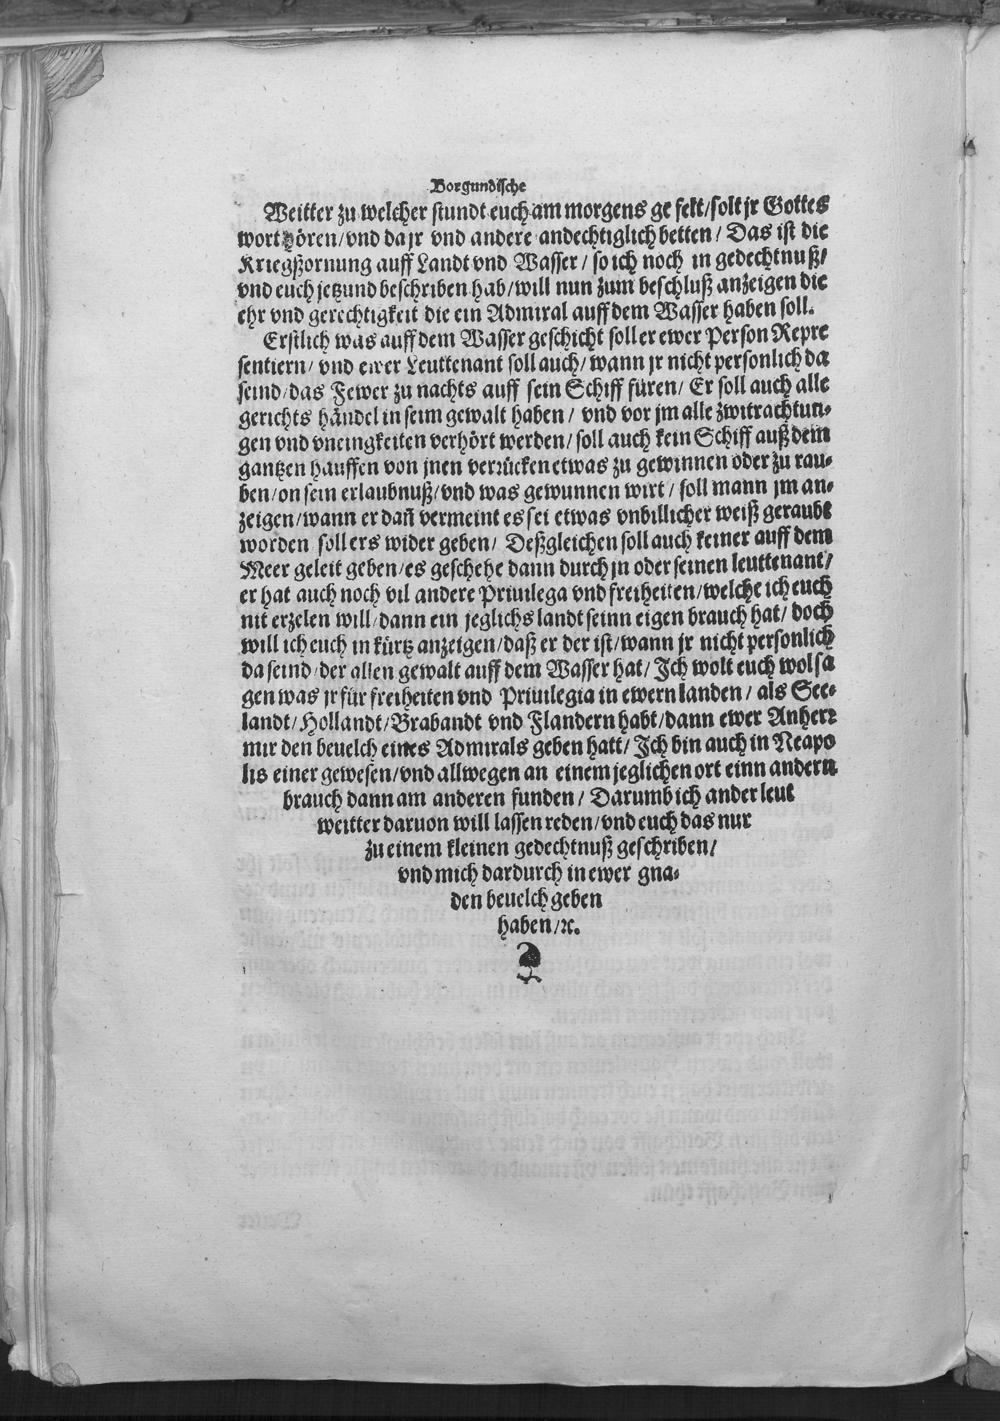 Borgundische
Weitter zu welcher stundt euch am morgens ge felt/solt jr Gottes
wort hören/vnd da jr vnd andere andechtiglich betten/ Das ist die
Kriegßornung auff Landt vnd Wasser/ so ich noch in gedechtnuß/
vnd euch jetzund beschriben hab/will nun zum beschluß anzeigen die
ehr vnd gerechtigkeit die ein Admiral auff dem Wasser haben soll.
Erstlich was auff dem Wasser geschicht soll er ewer Person Repre
sentiern/ vnd ewer Leuttenant soll auch/ wann jr nicht personlich da
seind/das Fewer zu nachts auff sein Schiff füren/ Er soll auch alle
gerichts händel in seim gewalt haben/ vnd vor jm alle zwitrachtun-
gen vnd vneingkeiten verhört werden/ soll auch kein Schiff auß dem
gantzen hauffen von jnen verrücken etwas zu gewinnen oder zu rau-
ben/on sein erlaubnuß/vnd was gewunnen wirt/ soll mann jm an-
zeigen/wann er dañ vermeint es sei etwas vnbillicher weiß geraubt
worden soll ers wider geben/ Deßgleichen soll auch keiner auff dem
Meer geleit geben/es geschehe dann durch jn oder seinen leuttenant/
er hat auch noch vil andere Priuilega vnd freiheiten/welche ich euch
nit erzelen will/dann ein jeglichs landt seinn eigen brauch hat/ doch
will ich euch in kürtz anzeigen/daß er der ist/wann jr nicht personlich
da seind/der allen gewalt auff dem Wasser hat/ Ich wolt euch wol sa
gen was jr für freiheiten vnd Priuilegia in ewern landen/ als See-
landt/Hollandt/Brabandt vnd Flandern habt/dann ewer Anherr
mir den beuelch eines Admirals geben hatt/ Ich bin auch in Neapo
lis einer gewesen/vnd allwegen an einem jeglichen ort einn andern
brauch dann am anderen funden/ Darumb ich ander leut
weitter daruon will lassen reden/vnd euch das nur
zu einem kleinen gedechtnuß geschriben/
vnd mich dardurch in ewer gna-
den beuelch geben
haben/ꝛc.